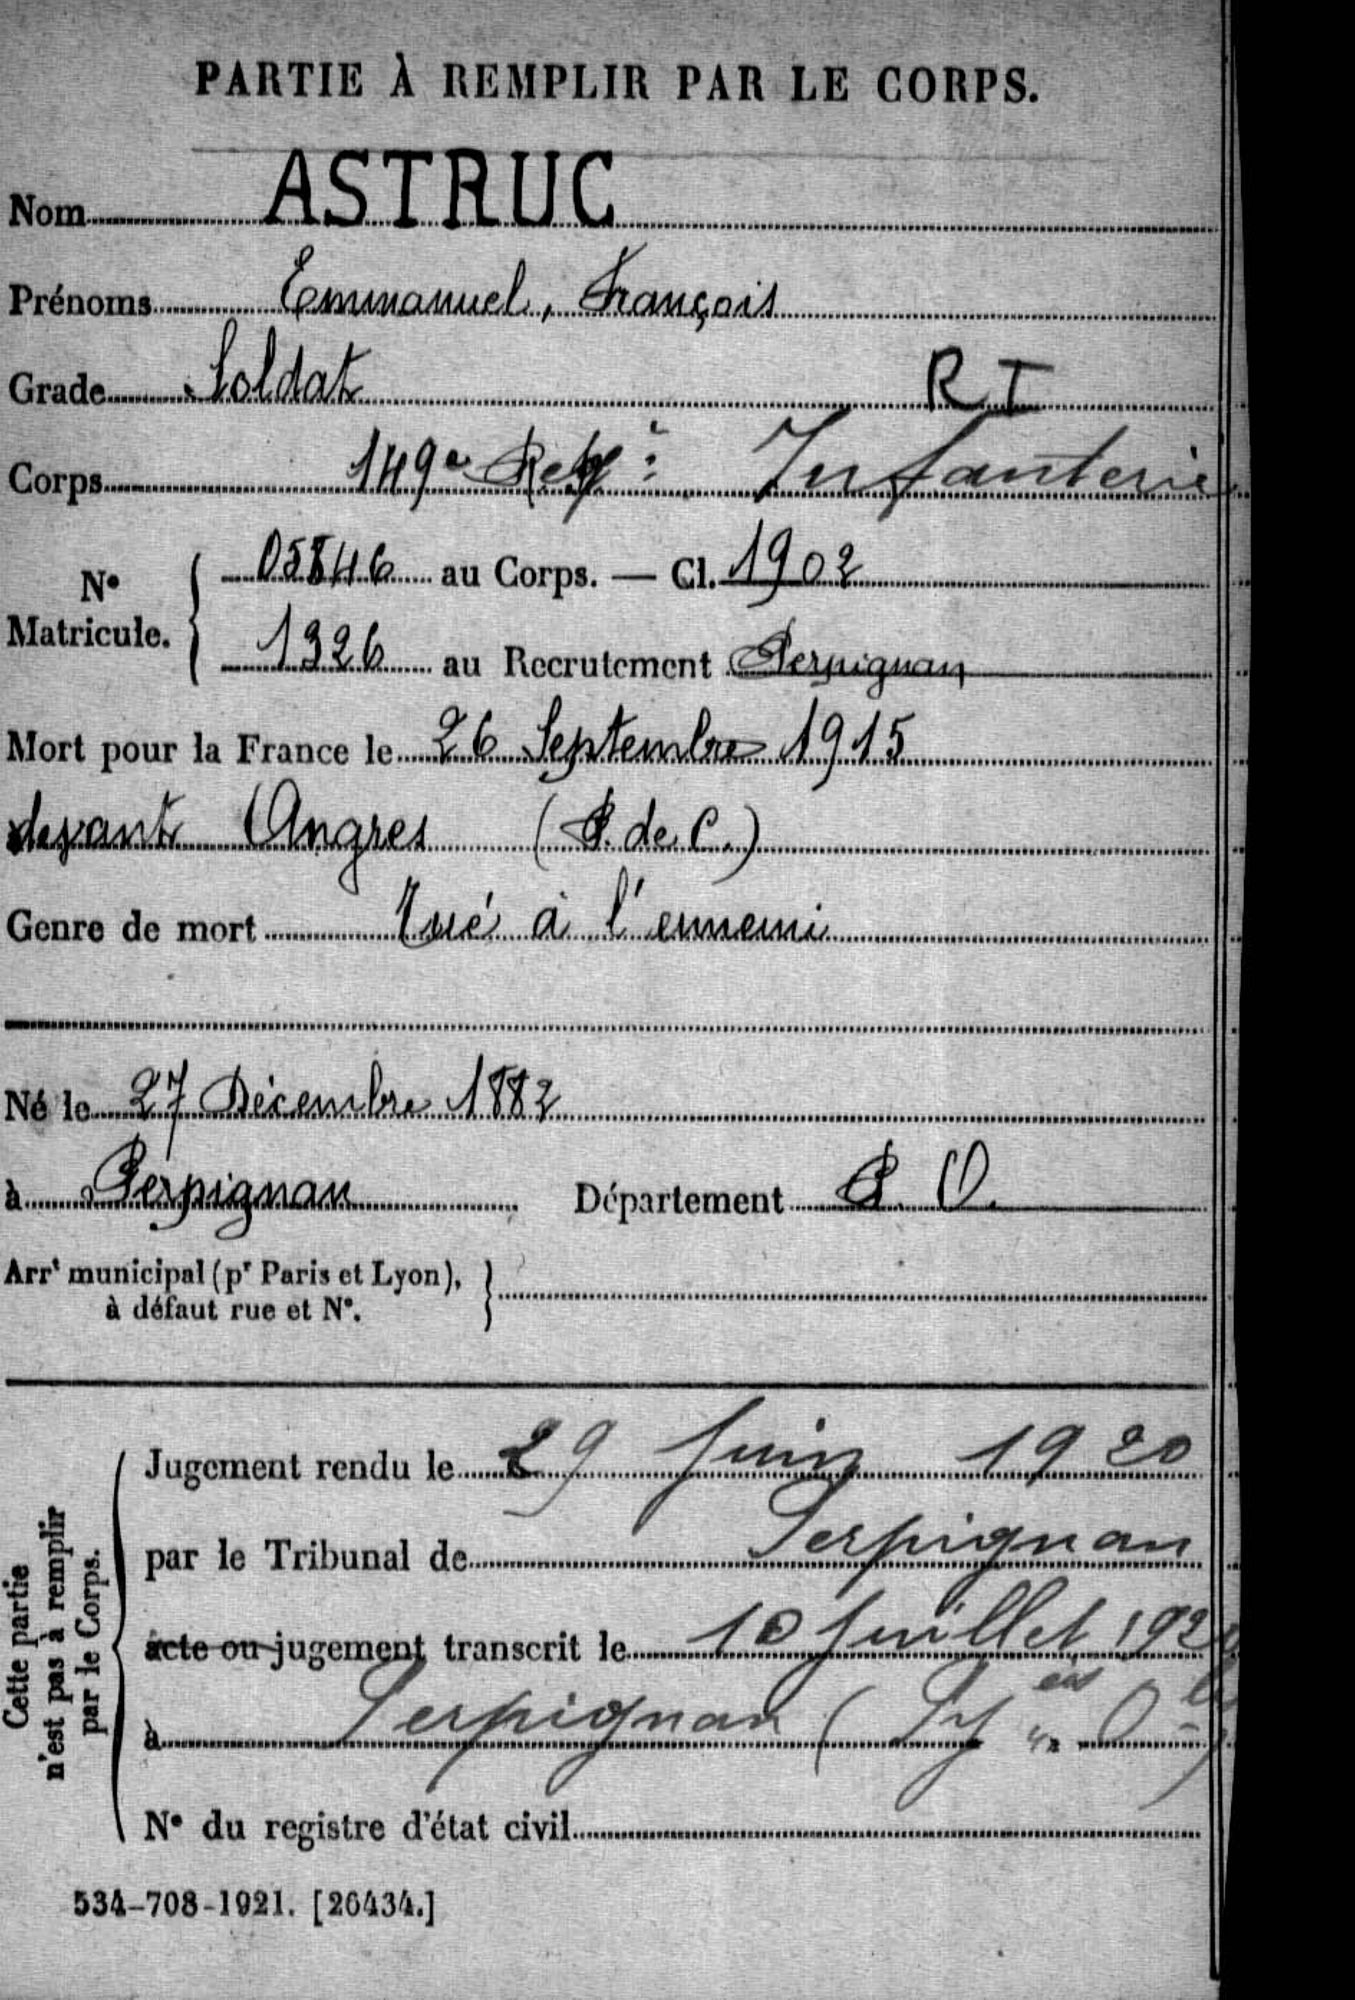 PARTIE À REMPLIR PAR LE CORPS.
Nom ASTRUC
Prénoms Emmanuel, François
Grade Soldat R I
Corps 149e Regt Infanterie
No Matricule. { 05846 au Corps. — Cl. 1902
1326 au Recrutement Perpignan
Mort pour la France le 26 Septembre 1915
devant Angres (P. de C.)
Genre de mort Tué à l'ennemi
Né le 27 Décembre 1882
à Perpignan Département P. O.
Arrt municipal (pr Paris et Lyon), }
à défaut rue et N°.
Cette partie
n'est pas à remplir
par le Corps.
Jugement rendu le 29 Juin 1920
par le Tribunal de Perpignan
acte ou jugement transcrit le 10 Juillet 1920
à Perpignan (Pyées Oles)
N° du registre d'état civil
534-708-1921. [26434.]